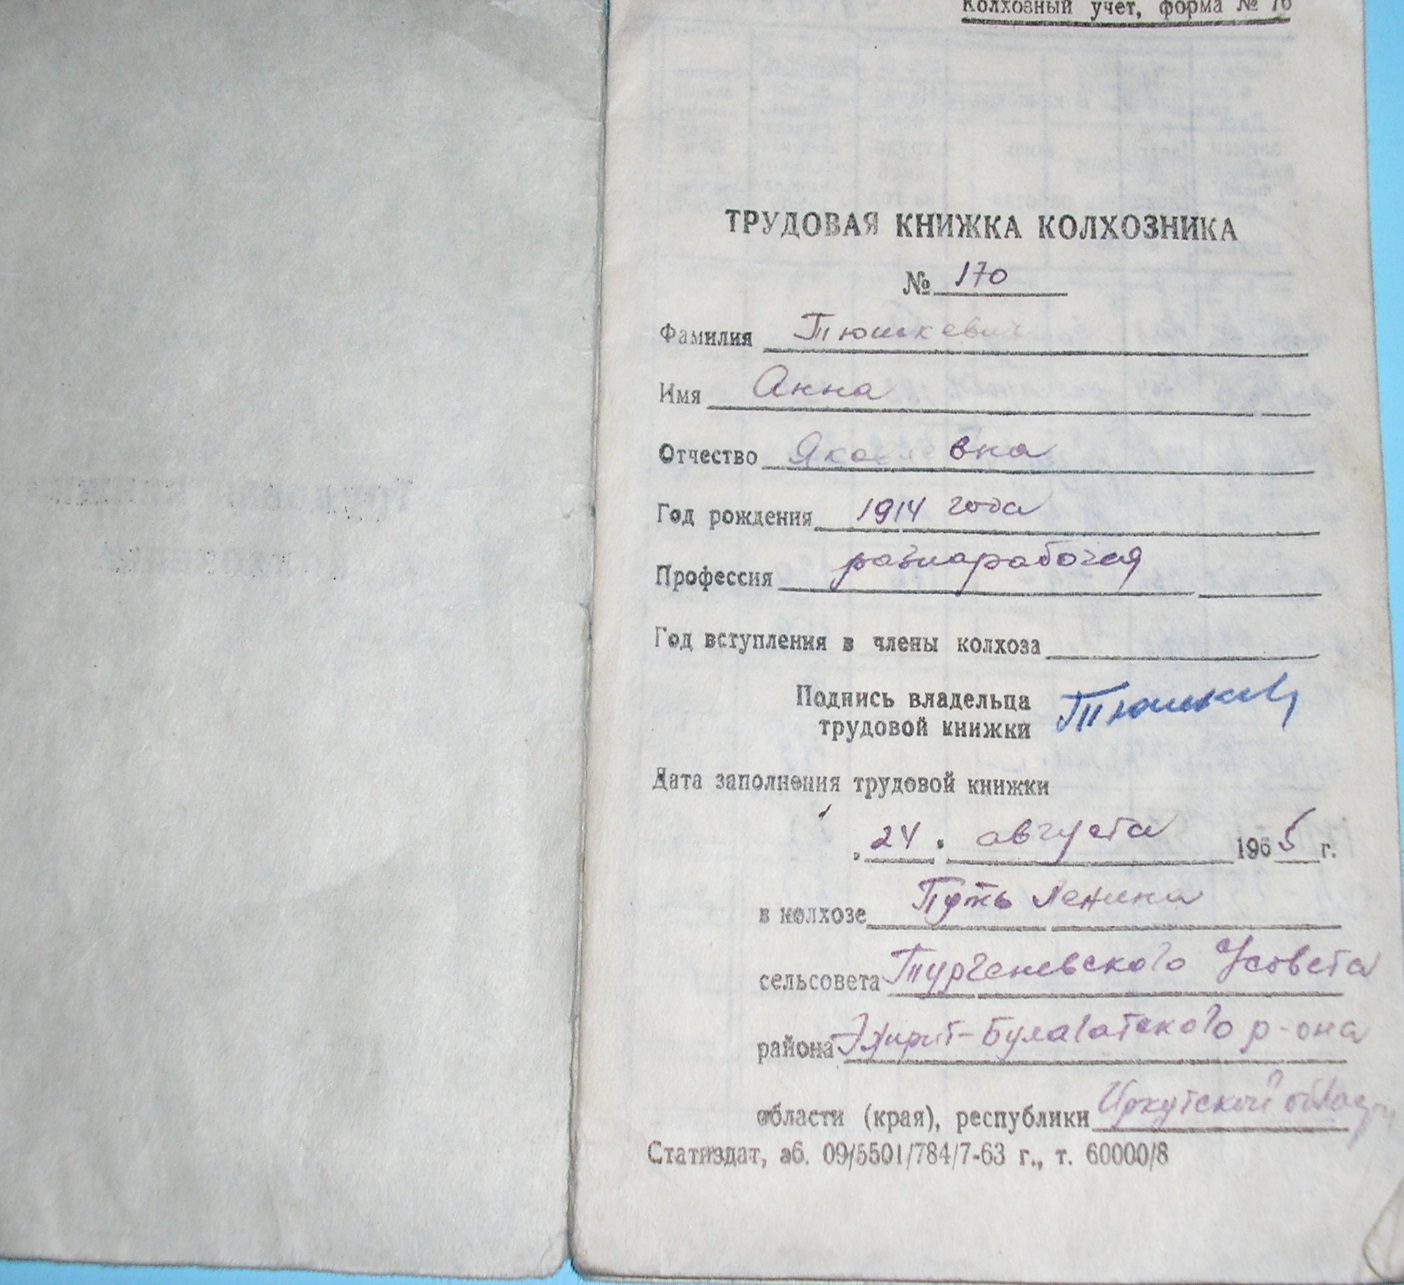 Колхозный учет, форма № 16
ТРУДОВАЯ КНИЖКА КОЛХОЗНИКА
№ 170
Фамилия Тюшкевич
Имя Анна
Отчество Яковлевна
Год рождения 1914 года
Профессия разнарабочая
Год вступления в члены колхоза
Подпись владельца Тюшкев
трудовой книжки
Дата заполнения трудовой книжки
„24" августа 1965 г.
в колхозе Путь Ленина
сельсовета Тургеневского С/совета
района Эхирит-Булагатского р-она
области (края), республики Иркутской области
Статиздат, зб. 09/5501/784/7-63 г., т. 60000/8